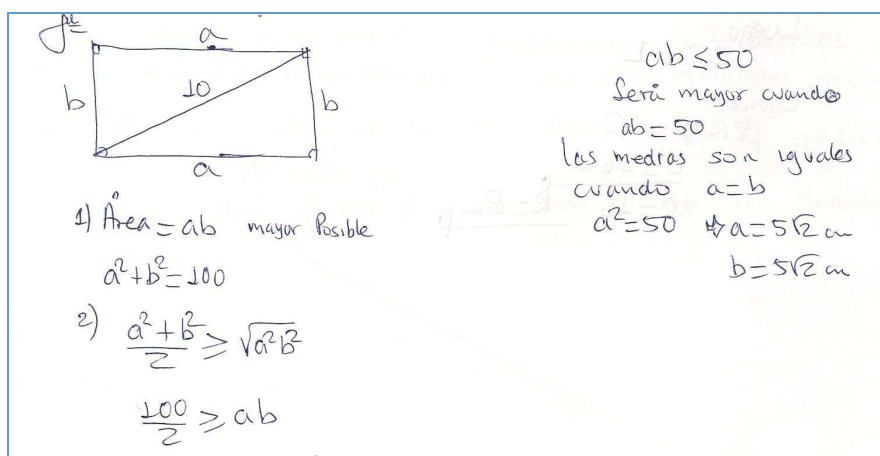 a
b
10
b
a
1) Área = ab mayor Posible
a² + b² = 100
2) (a² + b²)/2 ≥ √(a²b²)
100/2 ≥ ab
ab ≤ 50
Será mayor cuando
ab = 50
las medias son iguales
cuando a = b
a² = 50 ⇒ a = 5√2 cm
b = 5√2 cm